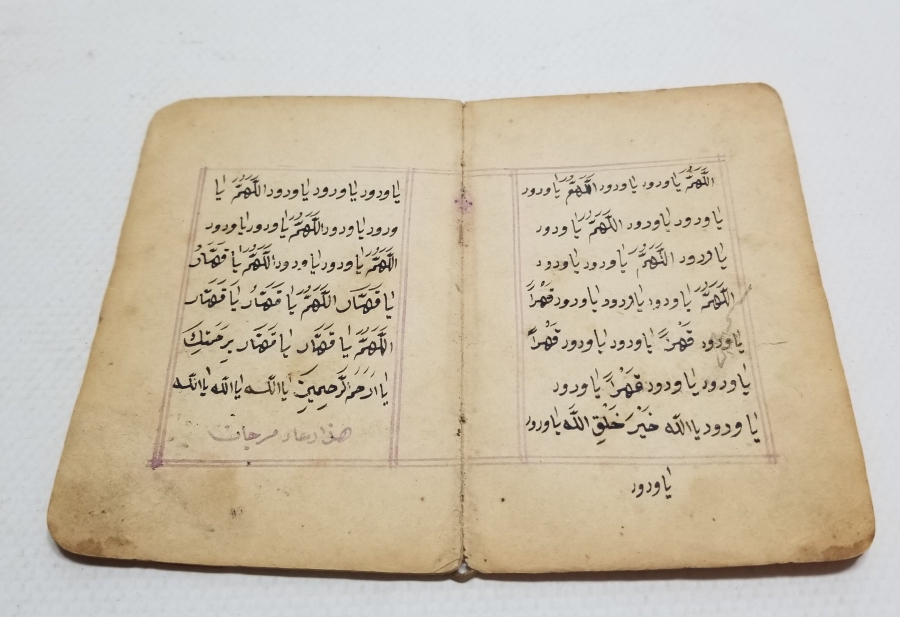 اللّهمّ ياودود ياودود اللّهمّ ياودود
ياودود ياودود اللّهمّ ياودود
ياودود اللّهمّ ياودود ياودود
اللّهمّ ياودود ياودود ياودود قَهْرًا
ياودود قَهْرًا ياودود ياودود قَهْرًا
ياودود ياودود قَهْرًا ياودود
ياودود ياالله خَيْرَ خَلْقِ اللَّه ياودود
ياودود
ياودود ياودود ياودود اللّهمّ يا
ودود ياودود اللّهمّ ياودود ياودود
اللّهمّ ياودود ياودود اللّهمّ يا قَهَّار
يا قَهَّار اللّهمّ يا قَهَّار يا قَهَّار
اللّهمّ يا قَهَّار يا قَهَّار بِرَحْمَتِكَ
يا ارَحَمَ الرَّحِمِينَ يا الله يا الله يا الله
هذا دعاء مرجان